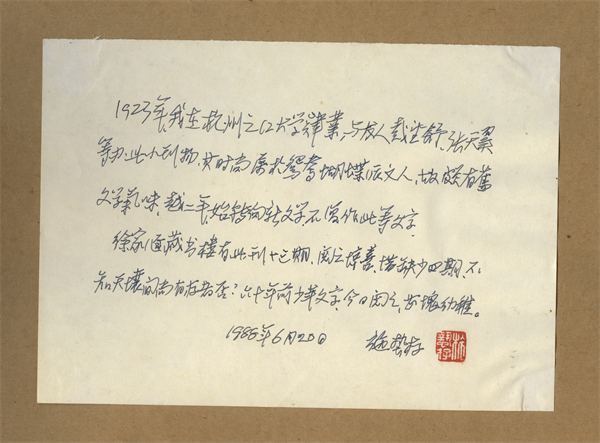 1923年,我在杭州之江大学肄業,与友人戴望舒、张天翼
等办此小刊物,其时尚属於鸳鸯蝴蝶派文人,故颇有舊
文学氣味,越二年,始转向新文学,不復作此等文字.
徐家汇藏书楼有此刊十三期,阅之惊喜,惜缺少四期,不
知天壤间尚有存者否?六十年前少年文字,今日阅之,愧幼稚。
1986年6月20日 施蛰存